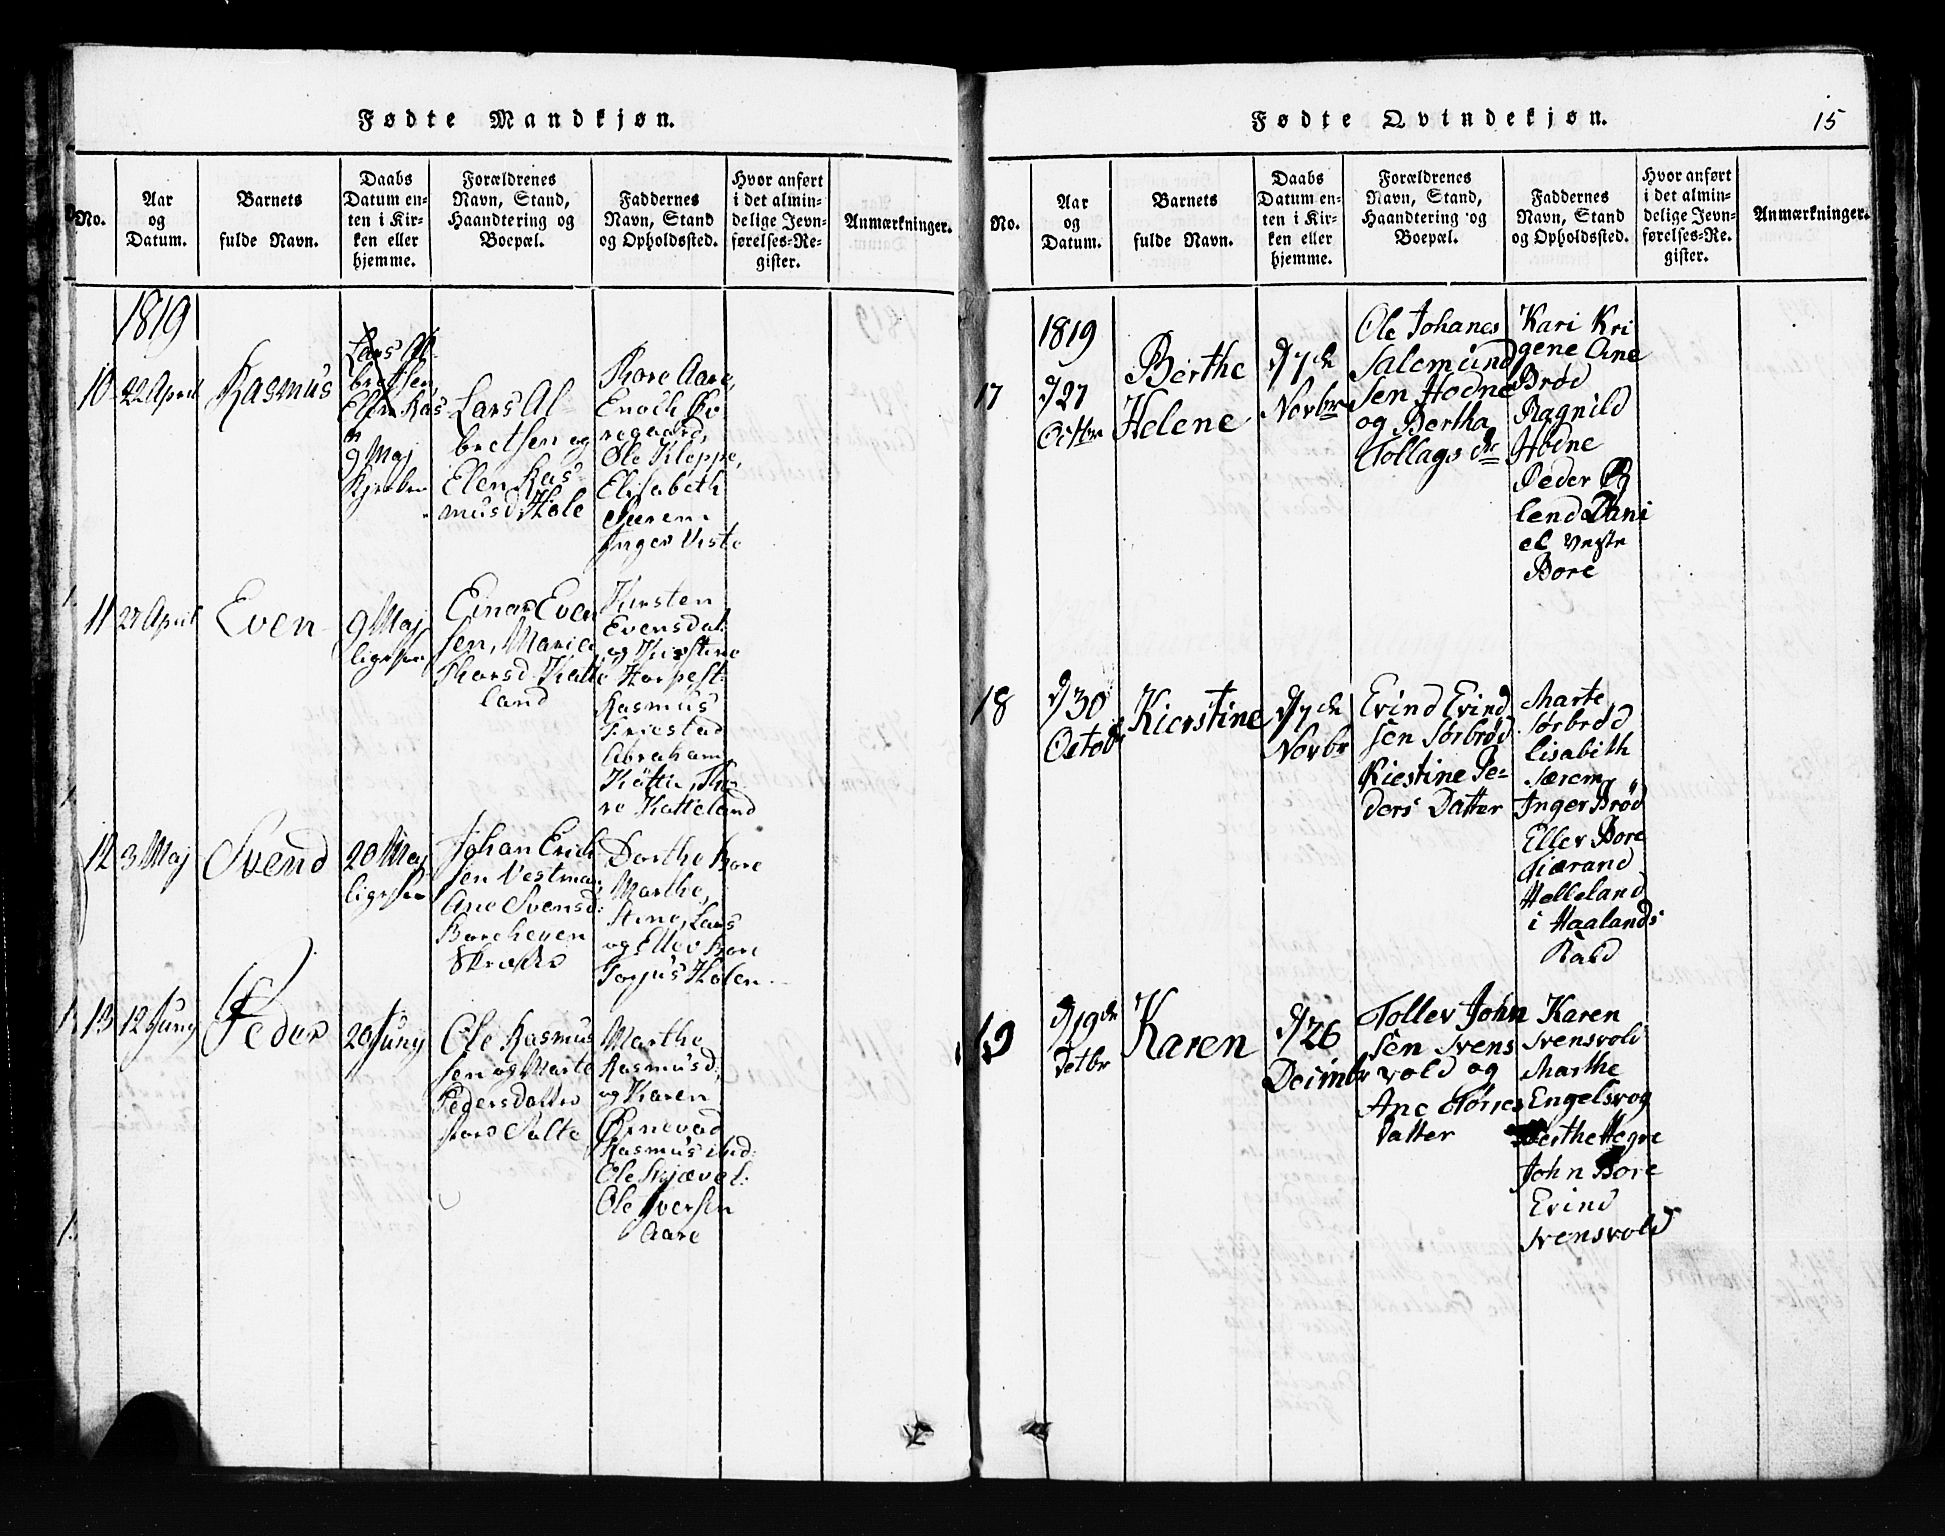 Fødte Mandkjøn.
No.
Aar
og
Datum.
Barnets
fulde Navn.
Daabs
Datum en-
ten i Kir-
ken eller
hjemme.
Forældrenes
Navn, Stand,
Haandtering og
Boepæl.
Faddernes
Navn, Stand
og Opholdssted.
Hvor anført
i det almin-
delige Jevn-
førelses-Re-
gister.
Anmærkninger.
1819
10
22 April
Rasmus
Lars Al-
bretsen,
Elen Ras
9 Maj
Lars Al-
bretsen og
Elen Ras-
musd. Hole
Thore Aare,
Enoch Bo
regaard,
Ole Kleppe,
Elisabeth
Særem
Inger Viste
11
27 April
Even
9 Maj
ligesaa
Einar Even
sen, Marie
Thorsd. Katte
land
Kirsten
Evensdat:
og Kirstine
Harpest:
Rasmus
Friestad
Abraham
Tho-
re Katteland
12
3 Maj
Svend
20 Maj
ligesaa
Johan Erich
sen Vestman,
Ane Svensd:
Dorthe Bore
Marthe,
Stine, Lars
og Ellev Bore
Torjus Holen
13
12 Juny
Peder
20 Juny
Ole Rasmus
sen og Marte
Pedersdatter
Salte
Marthe
Rasmusd:
og Karen
Ørnevad
Rasmus ibid:
Ole Skjævel:
Ole Iversen
Aare
Fødte Qvindekjøn.
15
No.
Aar
og
Datum.
Barnets
fulde Navn.
Daabs
Datum en-
ten i Kir-
ken eller
hjemme.
Forældrenes
Navn, Stand,
Haandtering og
Boepæl.
Faddernes
Navn, Stand
og Opholdssted.
Hvor anført
i det almin-
delige Jevn-
førelses-Re-
gister.
Anmærkninger.
1819
17
d/27
Octbr
Berthe
Helene
d/7de
Novbr
Ole Johanes
Salemund
sen Hodne
og Bertha
Tollags dr
Kari Kri
gene Ane
Brød
Ragnild
Hodne
Peder By
lend Dani
el Vestre
Bore
18
d/30
Octobr
Kierstine
d/7de
Novbr
Evind Evind
sen Sørbrød
Kiestine Pe-
ders Datter
Marte
Sørbrød
Lisabith
Særem
Inger Brød
Ellev Bore
Tiærand
Helleland
i Haalands
19
d/19de
Karen
d/26
Decimbr
Tollev John
sen Svens
vold og
Ane Tørres
Datter
Karen
Svensvold
Marthe
Engelsvog
Berthe Hegre
John Bore
Evind
Svensvold